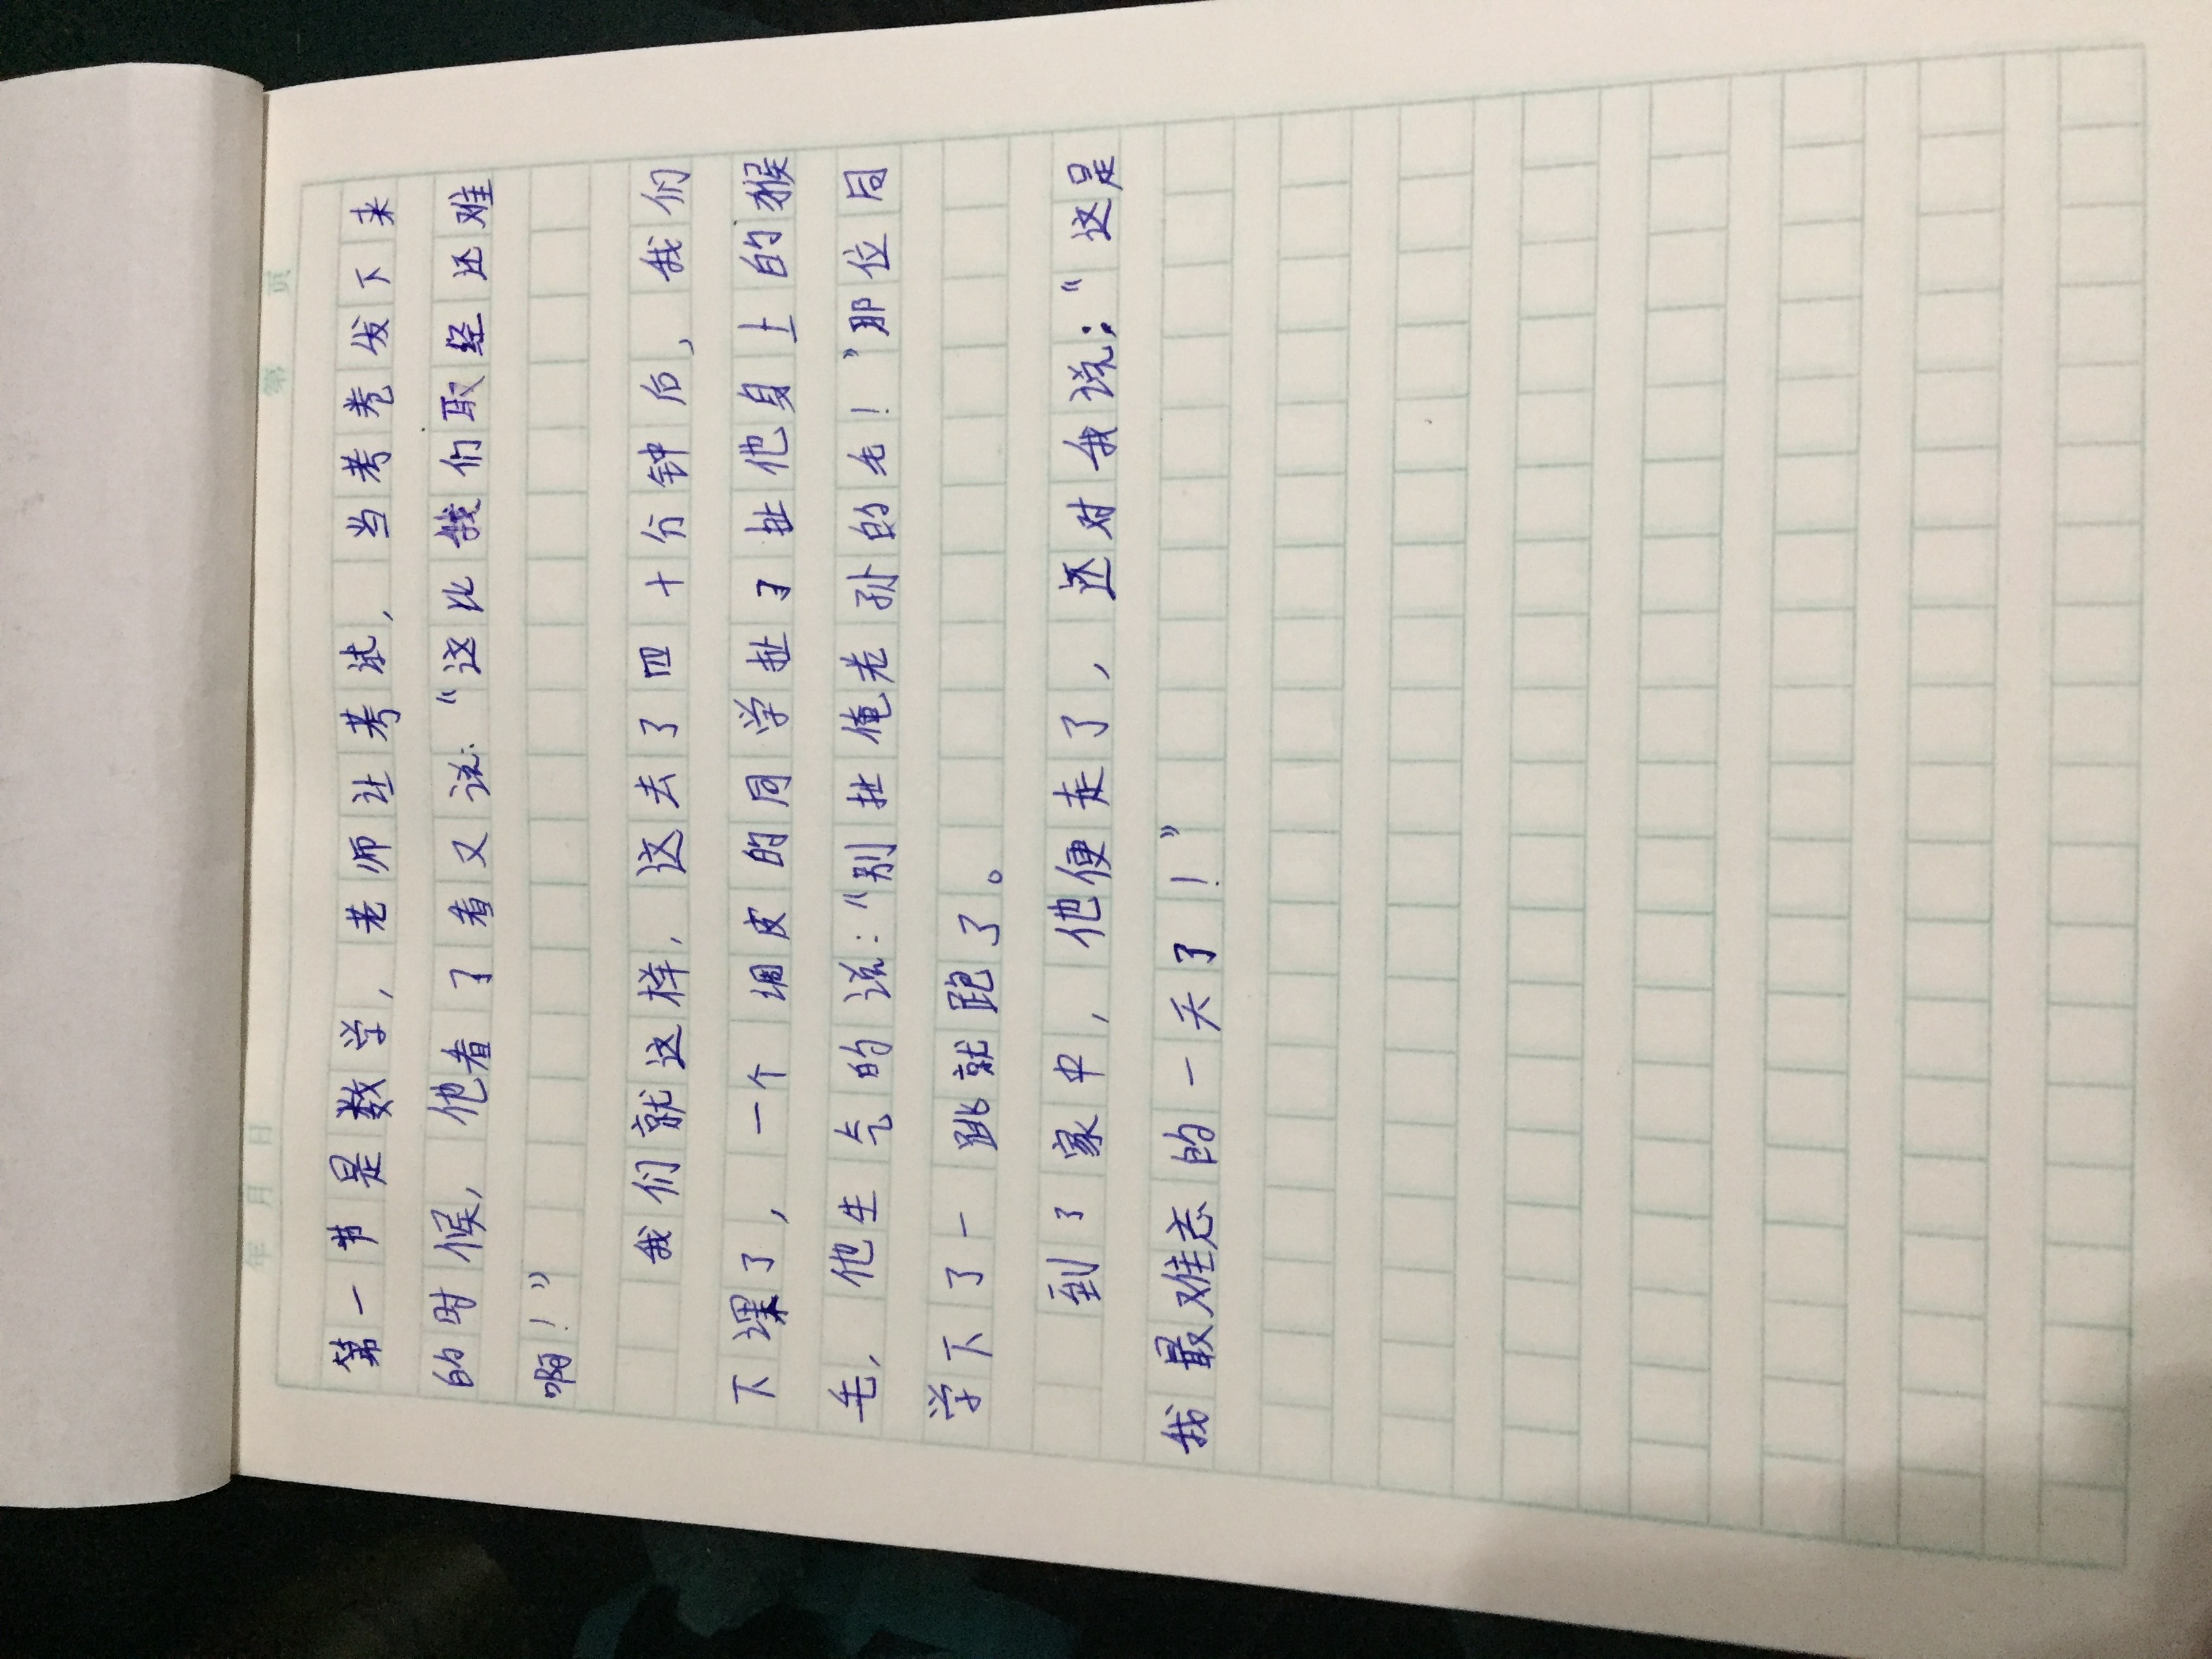 第 页
年 月 日
第一节是数学，老师让考试，当考卷发下来
的时候，他看了看又说：“这比我们取经还难
啊！”
我们就这样，这去了四十分钟后，我们
下课了，一个调皮的同学扯了扯他身上的猴
毛，他生气的说：“别扯俺老孙的毛！”那位同
学下了一跳就跑了。
到了家中，他便走了，还对我说：“这是
我最难忘的一天了！”